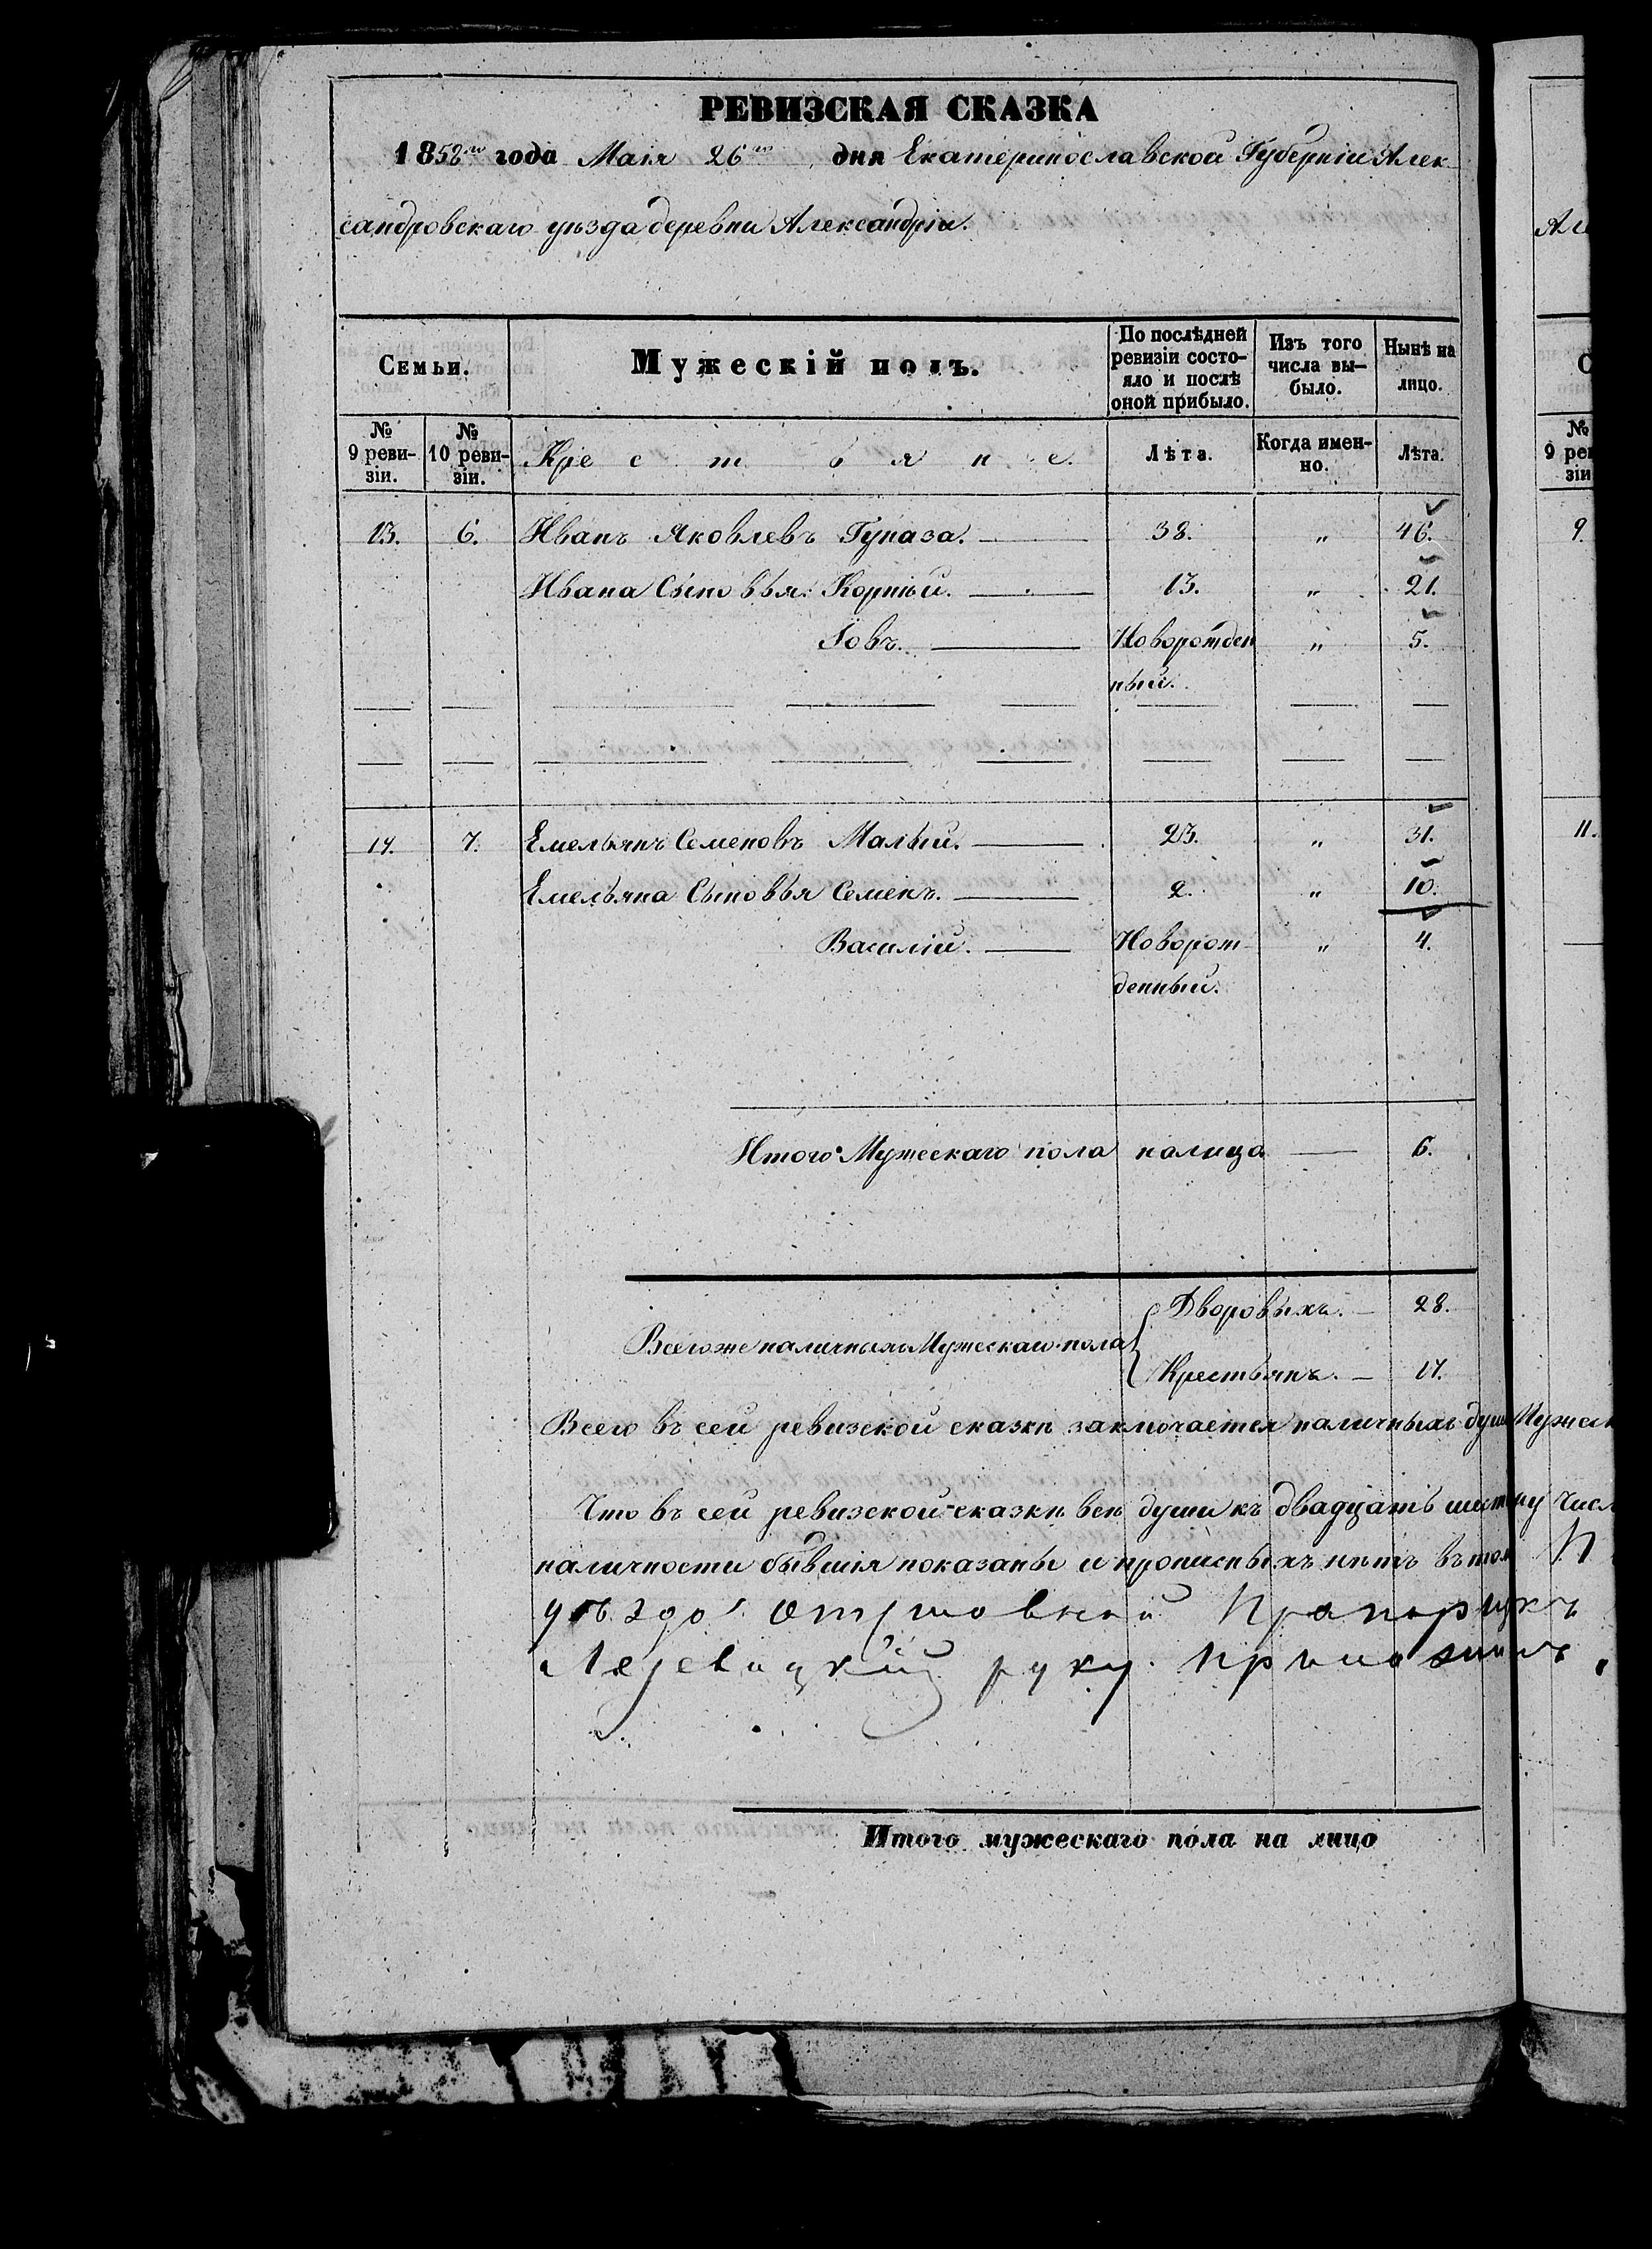 РЕВИЗСКАЯ СКАЗКА
1858го года Маія 26го дня Екатеринославской Губерніи Алек
сандровскаго уѣзда деревни Александріи.
Семьи.
Мужескій полъ.
По послѣдней ревизіи состо-
яло и послѣ оной прибыло.
Изъ того числа вы-
было.
Нынѣ на лицо.
№ 9 реви-
зіи.
№ 10 реви-
зіи.
Крестьяне.
Лѣта.
Когда имен-
но.
Лѣта.
13. 6. Иванъ Яковлевъ Гуназа. 38. " 46.
Ивана Сыновья: Корнѣй. 13. " 21.
Іовъ. Новорожден " 5.
ный.
14. 7. Емельянъ Семеновъ Малый. 23. " 31.
Емельяна Сыновья Семенъ. 2. " 10.
Василій. Новорож " 4.
денный.
Итого Мужескаго пола налицо 6.
Дворовыхъ. 28.
Всего же наличныхъ Мужескаго пола
Крестьянъ. 17.
Всего въ сей ревизской сказкѣ заключается наличныхъ душъ Мужеск
Что въ сей ревизской сказкѣ всѣ души къ двадцать шестому числ
наличности бывшія показаны и прописныхъ нѣтъ въ том
Прапорщикъ
руку приложилъ.
Итого мужескаго пола на лицо
№ 9 рев
зіи
9.
11.